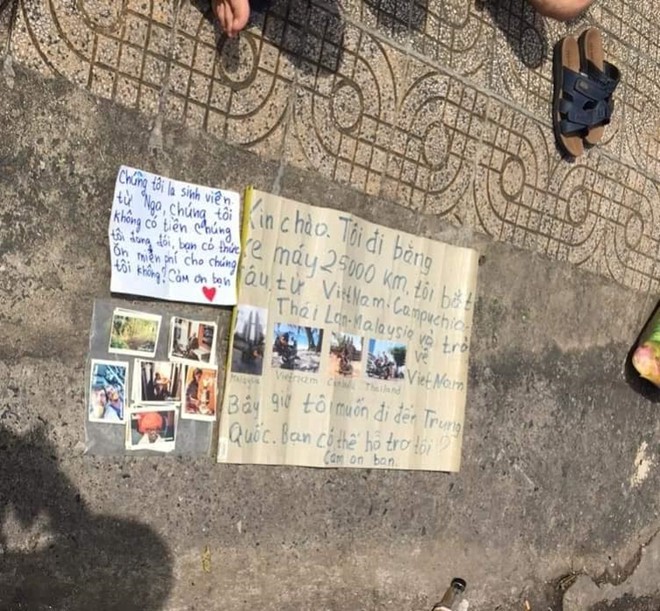 Chúng tôi là sinh viên
từ Nga, chúng tôi
không có tiền chúng
tôi đang đói, bạn có thức
ăn miễn phí cho chúng
tôi không? Cảm ơn bạn
Xin chào. Tôi đi bằng
xe máy 25000 km, tôi bắt
đầu từ VietNam-Campuchia-
Thái Lan-Malaysia và trở
về
VietNam
Malaysia Vietnam Thailand
Bây giờ tôi muốn đi đến Trung
Quốc. Bạn có thể hỗ trợ tôi
Cam on ban